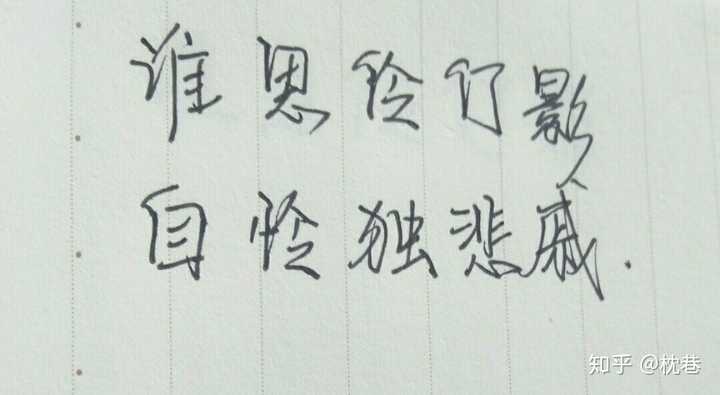 谁思伶仃影
自怜独悲戚.
知乎 @枕巷